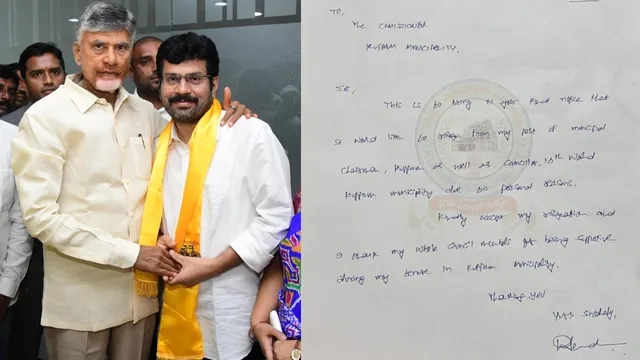 TO,
The Comissioner
Kuppam Municipality.
Sir,
This is to bring to your kind notice that
I would like to resign from my post of municipal
Chairman, Kuppam as well as Councillor, 16th ward
Kuppam municipality due to personal reasons.
Kindly accept my resignation and
I thank my whole council members for being supportive
during my tenure in Kuppam Municipality.
Thanking you
Yours